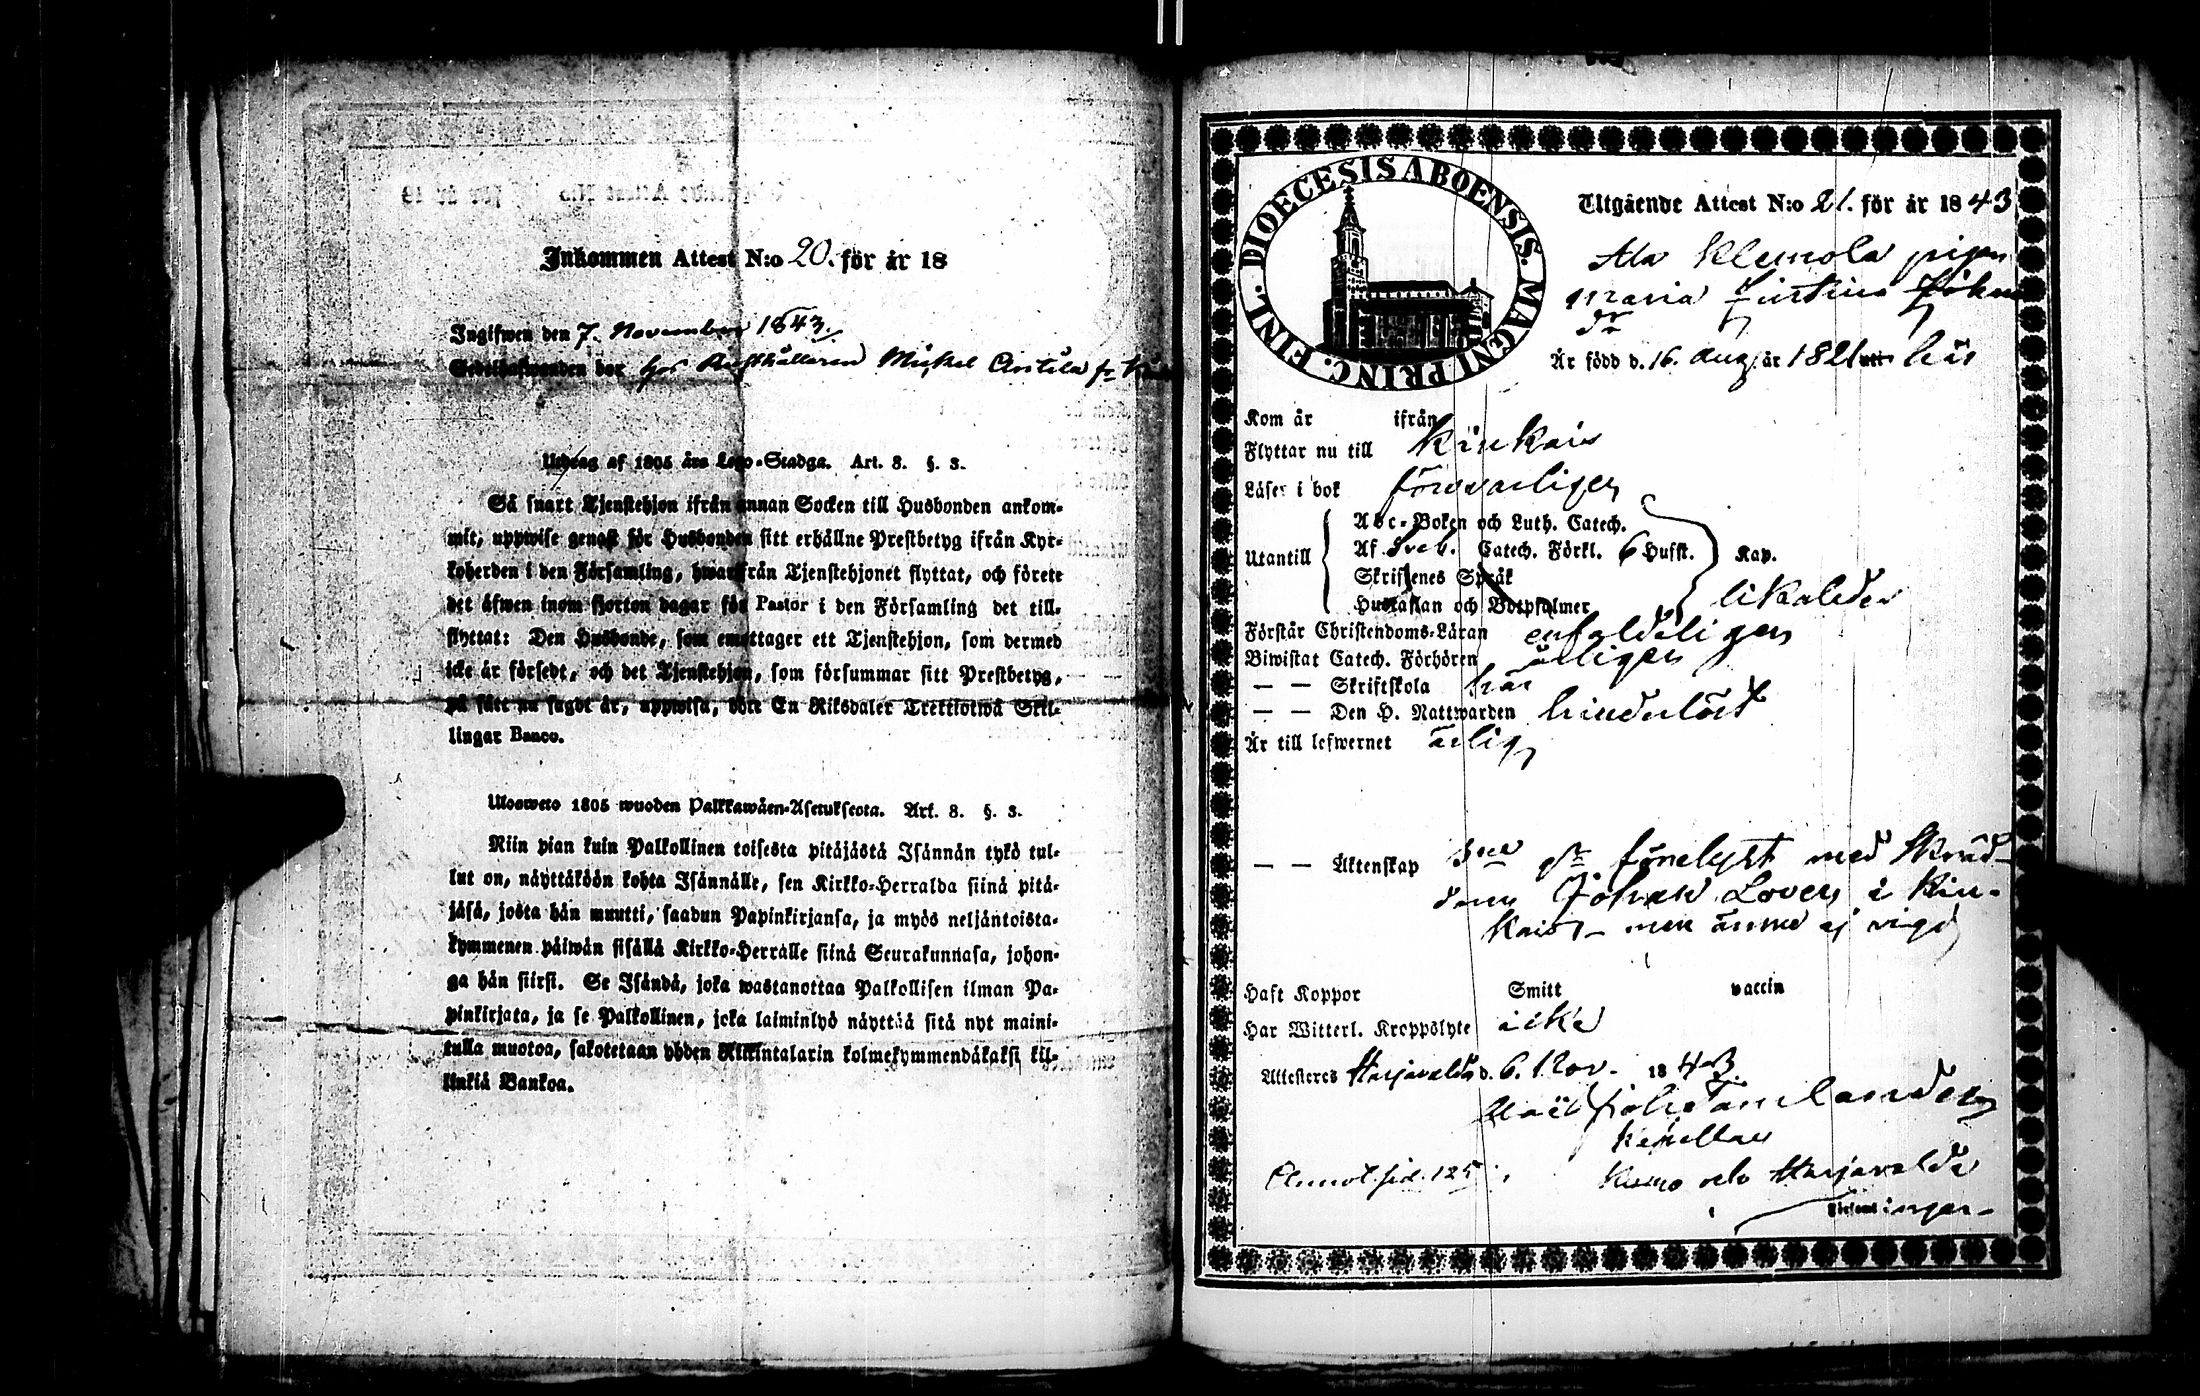 Inkommen Attest N:o 20. för år 18
Ingifwen den 7. November 1843.
Sedelhafwanden bor hos Rusthållaren Mickel Anttila fr
Utdrag af 1805 års Lego-Stadga. Art. 8. §. 3.
Så snart Tjenstehjon ifrån annan Socken till Husbonden ankom-
mit, uppwise genast för Husbonden sitt erhållne Prestbetyg ifrån Kyr-
koherden i den Församling, hwarifrån Tjenstehjonet flyttat, och förete
det äfwen inom fjorton dagar för Pastor i den Församling det till-
flyttat: Den Husbonde, som emottager ett Tjenstehjon, som dermed
icke är försedt, och det Tjenstehjon, som försummar sitt Prestbetyg,
på sätt nu sagdt är, uppwisa, böte En Riksdaler Trettiotwå Skil-
lingar Banco.
Ulosweto 1805 wuoden Palkkawäen-Asetuksesta. Art. 8. §. 3.
Niin pian kuin Palkollinen toisesta pitäjästä Isännän tykö tul-
lut on, näyttäköön kohta Isännälle, sen Kirkko-Herralda siinä pitä-
jäsä, josta hän muutti, saadun Papinkirjansa, ja myös neljäntoista-
kymmenen päiwän sisällä Kirkko-Herralle siinä Seurakunnasa, johon-
ga hän siirsi. Se Isändä, joka wastanottaa Palkollisen ilman Pa-
pinkirjata, ja se Palkollinen, joka laiminlyö näyttää sitä nyt maini-
tulla muotoa, sakotetaan yhden Riikintalarin kolmekymmendäkaksi kil-
linkiä Bankoa.
DIOECESIS ABOENSIS. MAGNI PRINC. FINL.
Utgående Attest N:o 21. för år 1843
Ala Klemola pigan
Maria Johns
dr
Är född d. 16. Aug. år 1821 uti här
Kom år ifrån
Flyttar nu till Kiukais
Läser i bok försvarligen
Utantill
Abc-Boken och Luth. Catech.
Af Sveb. Catech. Förkl. 6 Hufst. Kap.
Skriftenes Språk
Hustaflan och Botpsalmer likaledes
Förstår Christendoms-Läran enfaldeligen
Biwistat Catech. Förhören årligen
— — Skriftskola här
— — Den H. Nattwarden hinderlöst
Är till lefwernet ärlig
— — Äktenskap 3ne gr förelyst med Skräd-
daren Johan Loven i Kiu-
kais, men ännu ej vigd
Haft Koppor Smitt vaccin
Har Witterl. Kroppslyte icke
Attesteras Harjavalda d. 6. Nov. 1843.
Kapellan
Kumo och Harjavalda